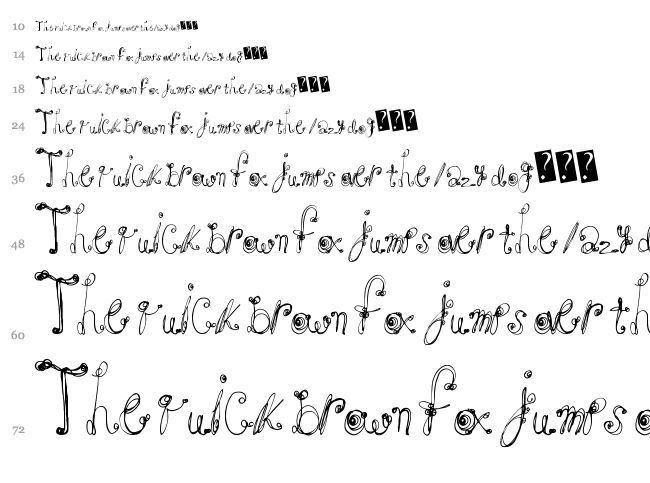 10 The quick brown fox jumps over the lazy dog???
14 The quick brown fox jumps over the lazy dog???
18 The quick brown fox jumps over the lazy dog???
24 The quick brown fox jumps over the lazy dog???
36 The quick brown fox jumps over the lazy dog???
48 The quick brown fox jumps over the lazy d
60 The quick brown fox jumps over th
72 The quick brown fox jumps o